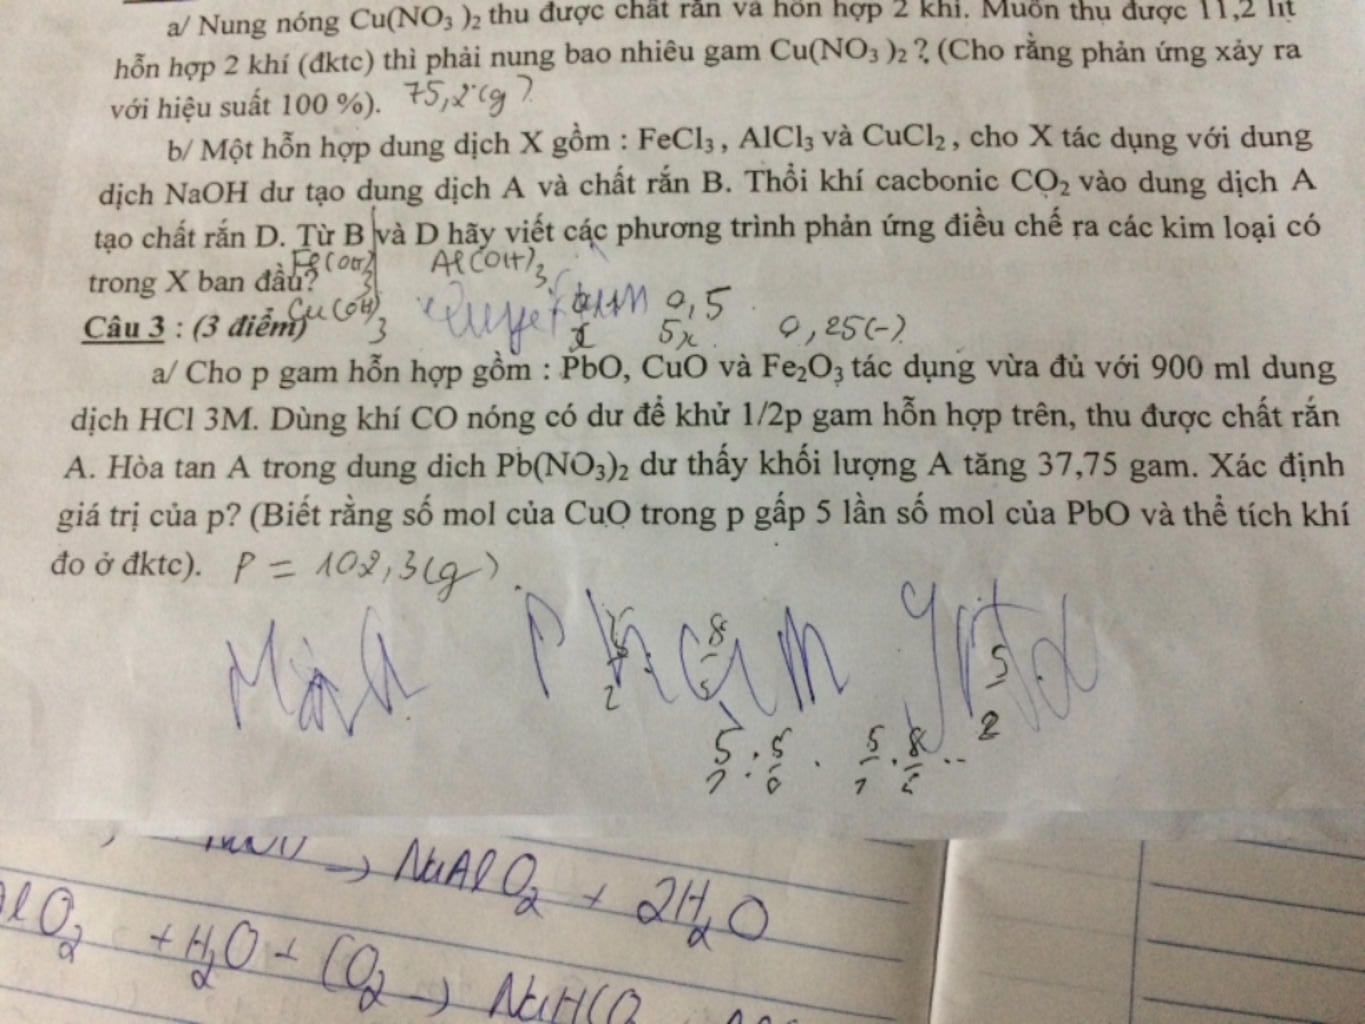 a/ Nung nóng Cu(NO₃)₂ thu được chất rắn và hỗn hợp 2 khí. Muốn thu được 11,2 lít
hỗn hợp 2 khí (đktc) thì phải nung bao nhiêu gam Cu(NO₃)₂ ? (Cho rằng phản ứng xảy ra
với hiệu suất 100 %). 75,2 (g)
b/ Một hỗn hợp dung dịch X gồm : FeCl₃ , AlCl₃ và CuCl₂ , cho X tác dụng với dung
dịch NaOH dư tạo dung dịch A và chất rắn B. Thổi khí cacbonic CO₂ vào dung dịch A
tạo chất rắn D. Từ B và D hãy viết các phương trình phản ứng điều chế ra các kim loại có
Fe(OH)3 Al(OH)3
trong X ban đầu?
Cu(OH)3 0,5
Câu 3 : (3 điểm) x 5x 0,25(-)
a/ Cho p gam hỗn hợp gồm : PbO, CuO và Fe₂O₃ tác dụng vừa đủ với 900 ml dung
dịch HCl 3M. Dùng khí CO nóng có dư để khử 1/2p gam hỗn hợp trên, thu được chất rắn
A. Hòa tan A trong dung dich Pb(NO₃)₂ dư thấy khối lượng A tăng 37,75 gam. Xác định
giá trị của p? (Biết rằng số mol của CuO trong p gấp 5 lần số mol của PbO và thể tích khí
đo ở đktc). P = 102,3(g)
→ NaAlO2 + 2H2O
lO2 + H2O + CO2 → NaHCO